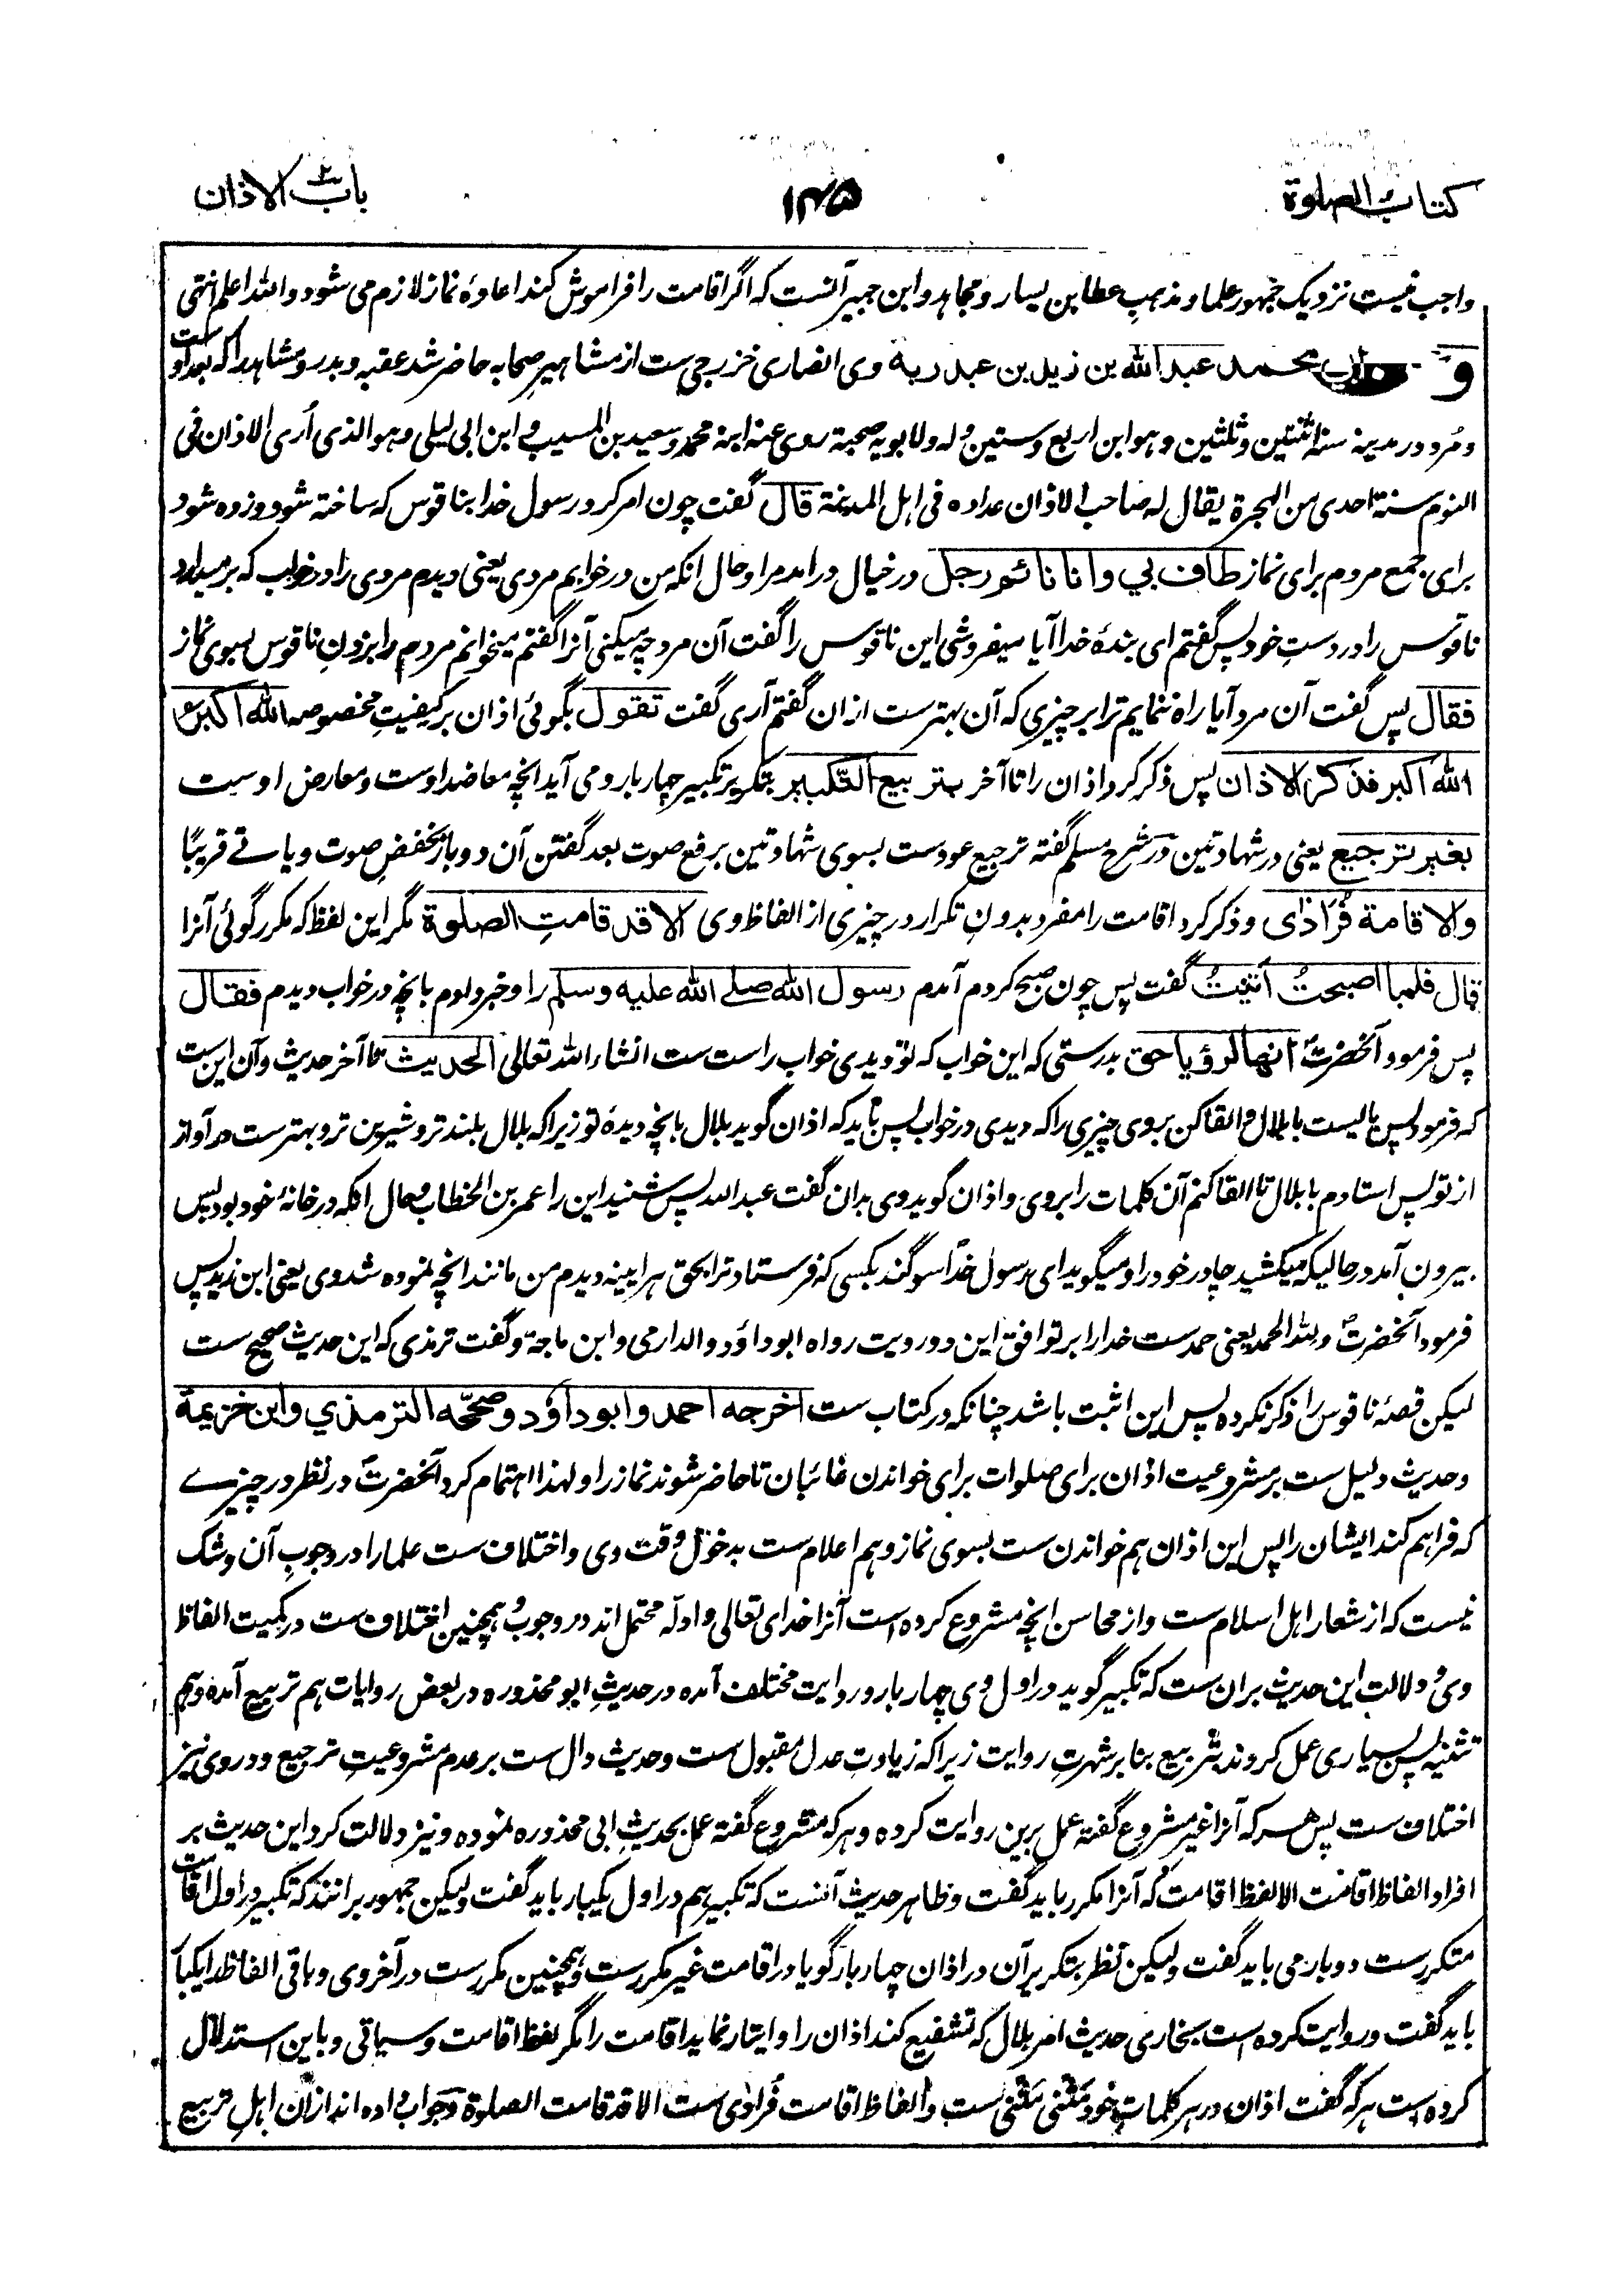 کتاب الصلوة
۱۴۵
باب الاذان
واجب نیست نزدیک جمهور علما و مذهب عطا بن یسار و مجاهد و ابن جبیر آنست که اگر اقامت را فراموش کند اعادهٔ نماز لازم می شود و الله اعلم انتهی
و محمد عبد الله بن زید بن عبد ربه وی انصاری خزرجی ست از مشاهیر صحابه حاضر شد عقبه و بدر و مشاهد را که بعد اوست
و مُرد در مدینه سنه اثنتین و ثلثین و هو ابن اربع و ستین و له و لابویه صحبة روی عنه ابنه محمد و سعید بن المسیب و ابن ابی لیلی و هو الذی اُری الاذان فی
النوم سنة احدی من الهجرة یقال له صاحب الاذان عداده فی اهل المدینة قال گفت چون امر کرد رسول خدا بناقوس که ساخته شود و زده شود
برای جمع مردم برای نماز طاف بي وانا نائم رجل در خیال درامد مرا و حال انکه من در خوابم مردی یعنی دیدم مردی را در خواب که بر میدارد
ناقوس را در دست خود پس گفتم ای بندهٔ خدا آیا میفروشی این ناقوس را گفت آن مرد چه میکنی آنرا گفتم میخوانم مردم را بزدن ناقوس بسوی نماز
فقال پس گفت آن مرد آیا راه ننمایم ترا بر چیزی که آن بهتر ست ازان گفتم آری گفت تقول بگوئی اذان بر کیفیت مخصوصه الله اکبر
الله اکبر فذکر الاذان پس ذکر کرد اذان را تا آخر بتربیع التکبیر بتکریر تکبیر چهار بار و می آید انچه معاضد اوست و معارض اوست
بغیر ترجیع یعنی در شهادتین در شرح مسلم گفته ترجیع عود ست بسوی شهادتین برفع صوت بعد گفتن آن دو بار بخفض صوت و یاتے قریبًا
والاقامة فُرَادٰی و ذکر کرد اقامت را مفرد بدون تکرار در چیزی از الفاظ وی الا قد قامت الصلوة مگر این لفظ که مکرر گوئی آنرا
قال فلما اصبحتُ أتیتُ گفت پس چون صبح کردم آمدم رسول الله صلے الله علیه وسلم را و خبر دادم بانچه در خواب دیدم فقال
پس فرمود آنحضرت انها لرؤیا حق بدرستی که این خواب که تو دیدی خواب راست ست انشاء الله تعالی الحدیث تا آخر حدیث و آن این ست
که فرمود پس بالیست با بلال و القا کن بروی چیزی را که دیدی در خواب پس باید که اذان گوید بلال بانچه دیدهٔ تو زیرا که بلال بلند تر و شیرین تر و بهتر ست در آواز
از تو پس استادم با بلال تا القا کنم آن کلمات را بروی و اذان گوید وی بدان گفت عبد الله پس شنید این را عمر بن الخطاب و حال انکه در خانهٔ خود بود پس
بیرون آمد در حالیکه میکشید چادر خود را و میگوید ای رسول خدا سوگند بکسی که فرستاد ترا بحق هر ایینه دیدم من مانند انچه نموده شد وی یعنی ابن زید پس
فرمود آنحضرت و لله الحمد یعنی حمد ست خدا را بر توافق این دو رویت رواه ابو داؤد و الدارمی و ابن ماجة و گفت ترمذی که این حدیث صحیح ست
لیکن قصهٔ ناقوس را ذکر نکرده پس این اثبت باشد چنانکه در کتاب ست اخرجه احمد وابو داؤد وصححه الترمذي وابن خزیمة
و حدیث دلیل ست بر مشروعیت اذان برای صلوات برای خواندن غائبان تا حاضر شوند نماز را و لهذا اهتمام کرد آنحضرت در نظر در چیزے
که فراهم کند ایشان را پس این اذان هم خواندن ست بسوی نماز و هم اعلام ست بدخول وقت وی و اختلاف ست علما را در وجوب آن و شک
نیست که از شعار اهل اسلام ست و از محاسن انچه مشروع کرده است آنرا خدای تعالی و ادلّه محتمل اند در وجوب و همچنین اختلاف ست در کمیت الفاظ
وی و دلالت این حدیث بران ست که تکبیر گوید در اول وی چهار بار و روایت مختلف آمده در حدیث ابو محذوره در بعض روایات هم تربیع آمده و هم
تثنیه پس بسیاری عمل کردند بتربیع بنا بر شهرت روایت زیرا که زیادت عدل مقبول ست و حدیث دال ست بر عدم مشروعیت ترجیع و در وی نیز
اختلاف ست پس هر که آنرا غیر مشروع گفته عمل برین روایت کرده و هر که مشروع گفته عمل بحدیث ابی محذوره نموده و نیز دلالت کرد این حدیث بر
افراد الفاظ اقامت الا لفظ اقامت که آنرا مکرر باید گفت و ظاهر حدیث آنست که تکبیر هم در اول یکبار باید گفت ولیکن جمهور برانند که تکبیر در اول اقامت
متکرر ست دوبار می باید گفت ولیکن نظر بتکریر آن در اذان چهار بار گویا در اقامت غیر مکرر ست و همچنین مکرر ست در آخر وی و باقی الفاظ را یکبار
باید گفت و روایت کرده است بخاری حدیث امر بلال که تشفیع کند اذان را و ایتار نماید اقامت را مگر لفظ اقامت و سیاتی و باین استدلال
کرده است هر که گفت اذان در هر کلمات خود مثنی مثنی ست و الفاظ اقامت فُرادی ست الا قد قامت الصلوة و جواب داده اند ازان اهل تربیع